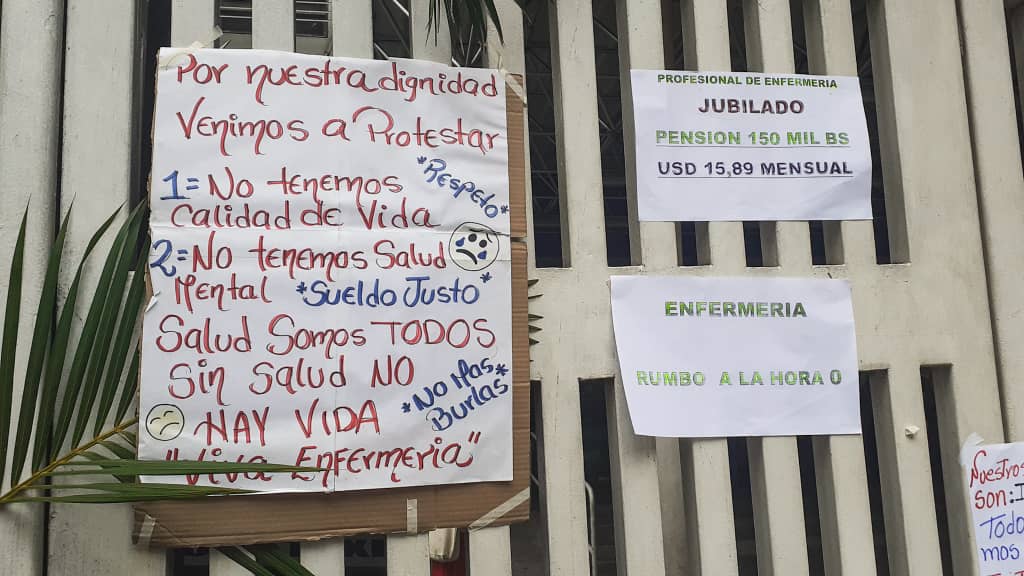 Por nuestra dignidad
Venimos a Protestar
1= No tenemos
Calidad de Vida
*Respeto*
2= No tenemos Salud
Mental *Sueldo Justo*
Salud Somos TODOS
Sin Salud NO
HAY VIDA
*No Mas
Burlas*
"Viva Enfermeria"
PROFESIONAL DE ENFERMERIA
JUBILADO
PENSION 150 MIL BS
USD 15,89 MENSUAL
ENFERMERIA
RUMBO A LA HORA 0
Nuestros
son:
Todo
mos